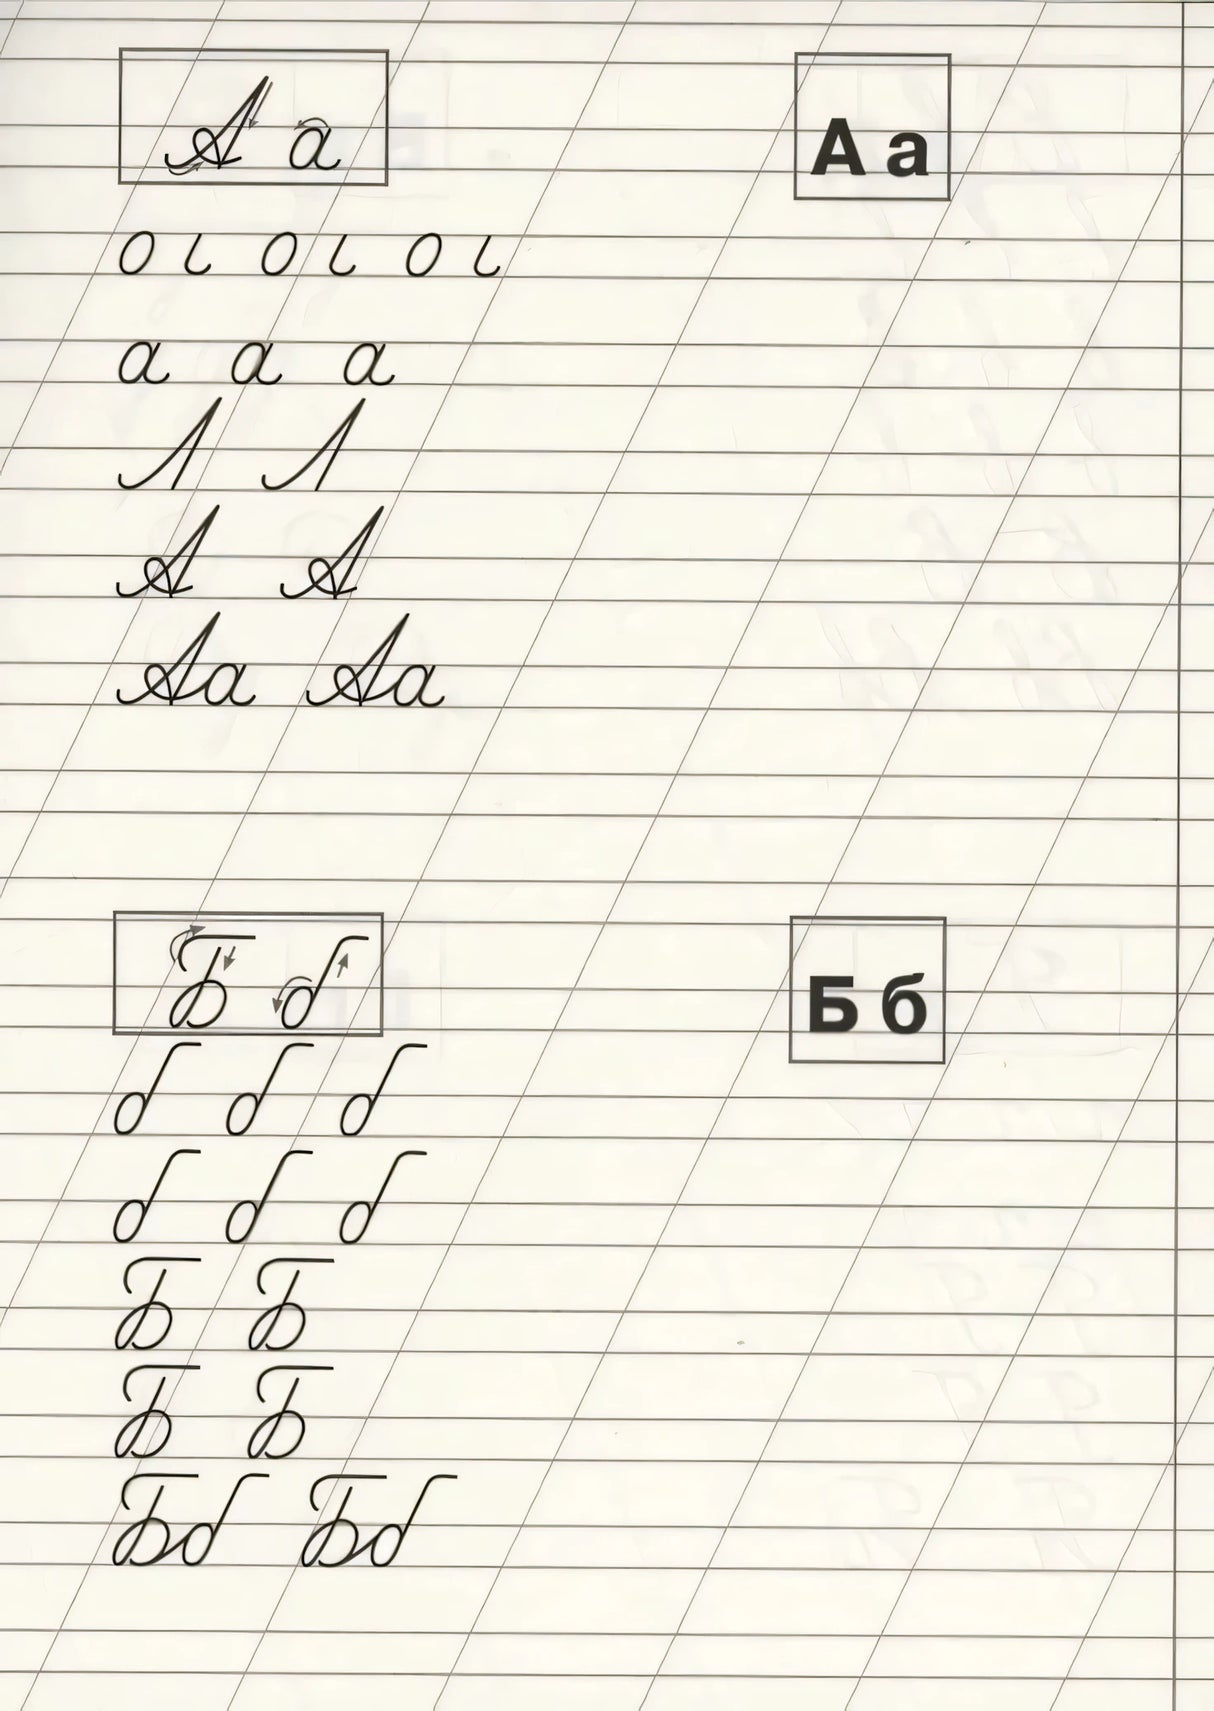 А а А а
о ι о ι о ι
а а а
Л Л
А А
Аа Аа
Б б Б б
б б б
б б б
Б Б
Б Б
Бб Бб